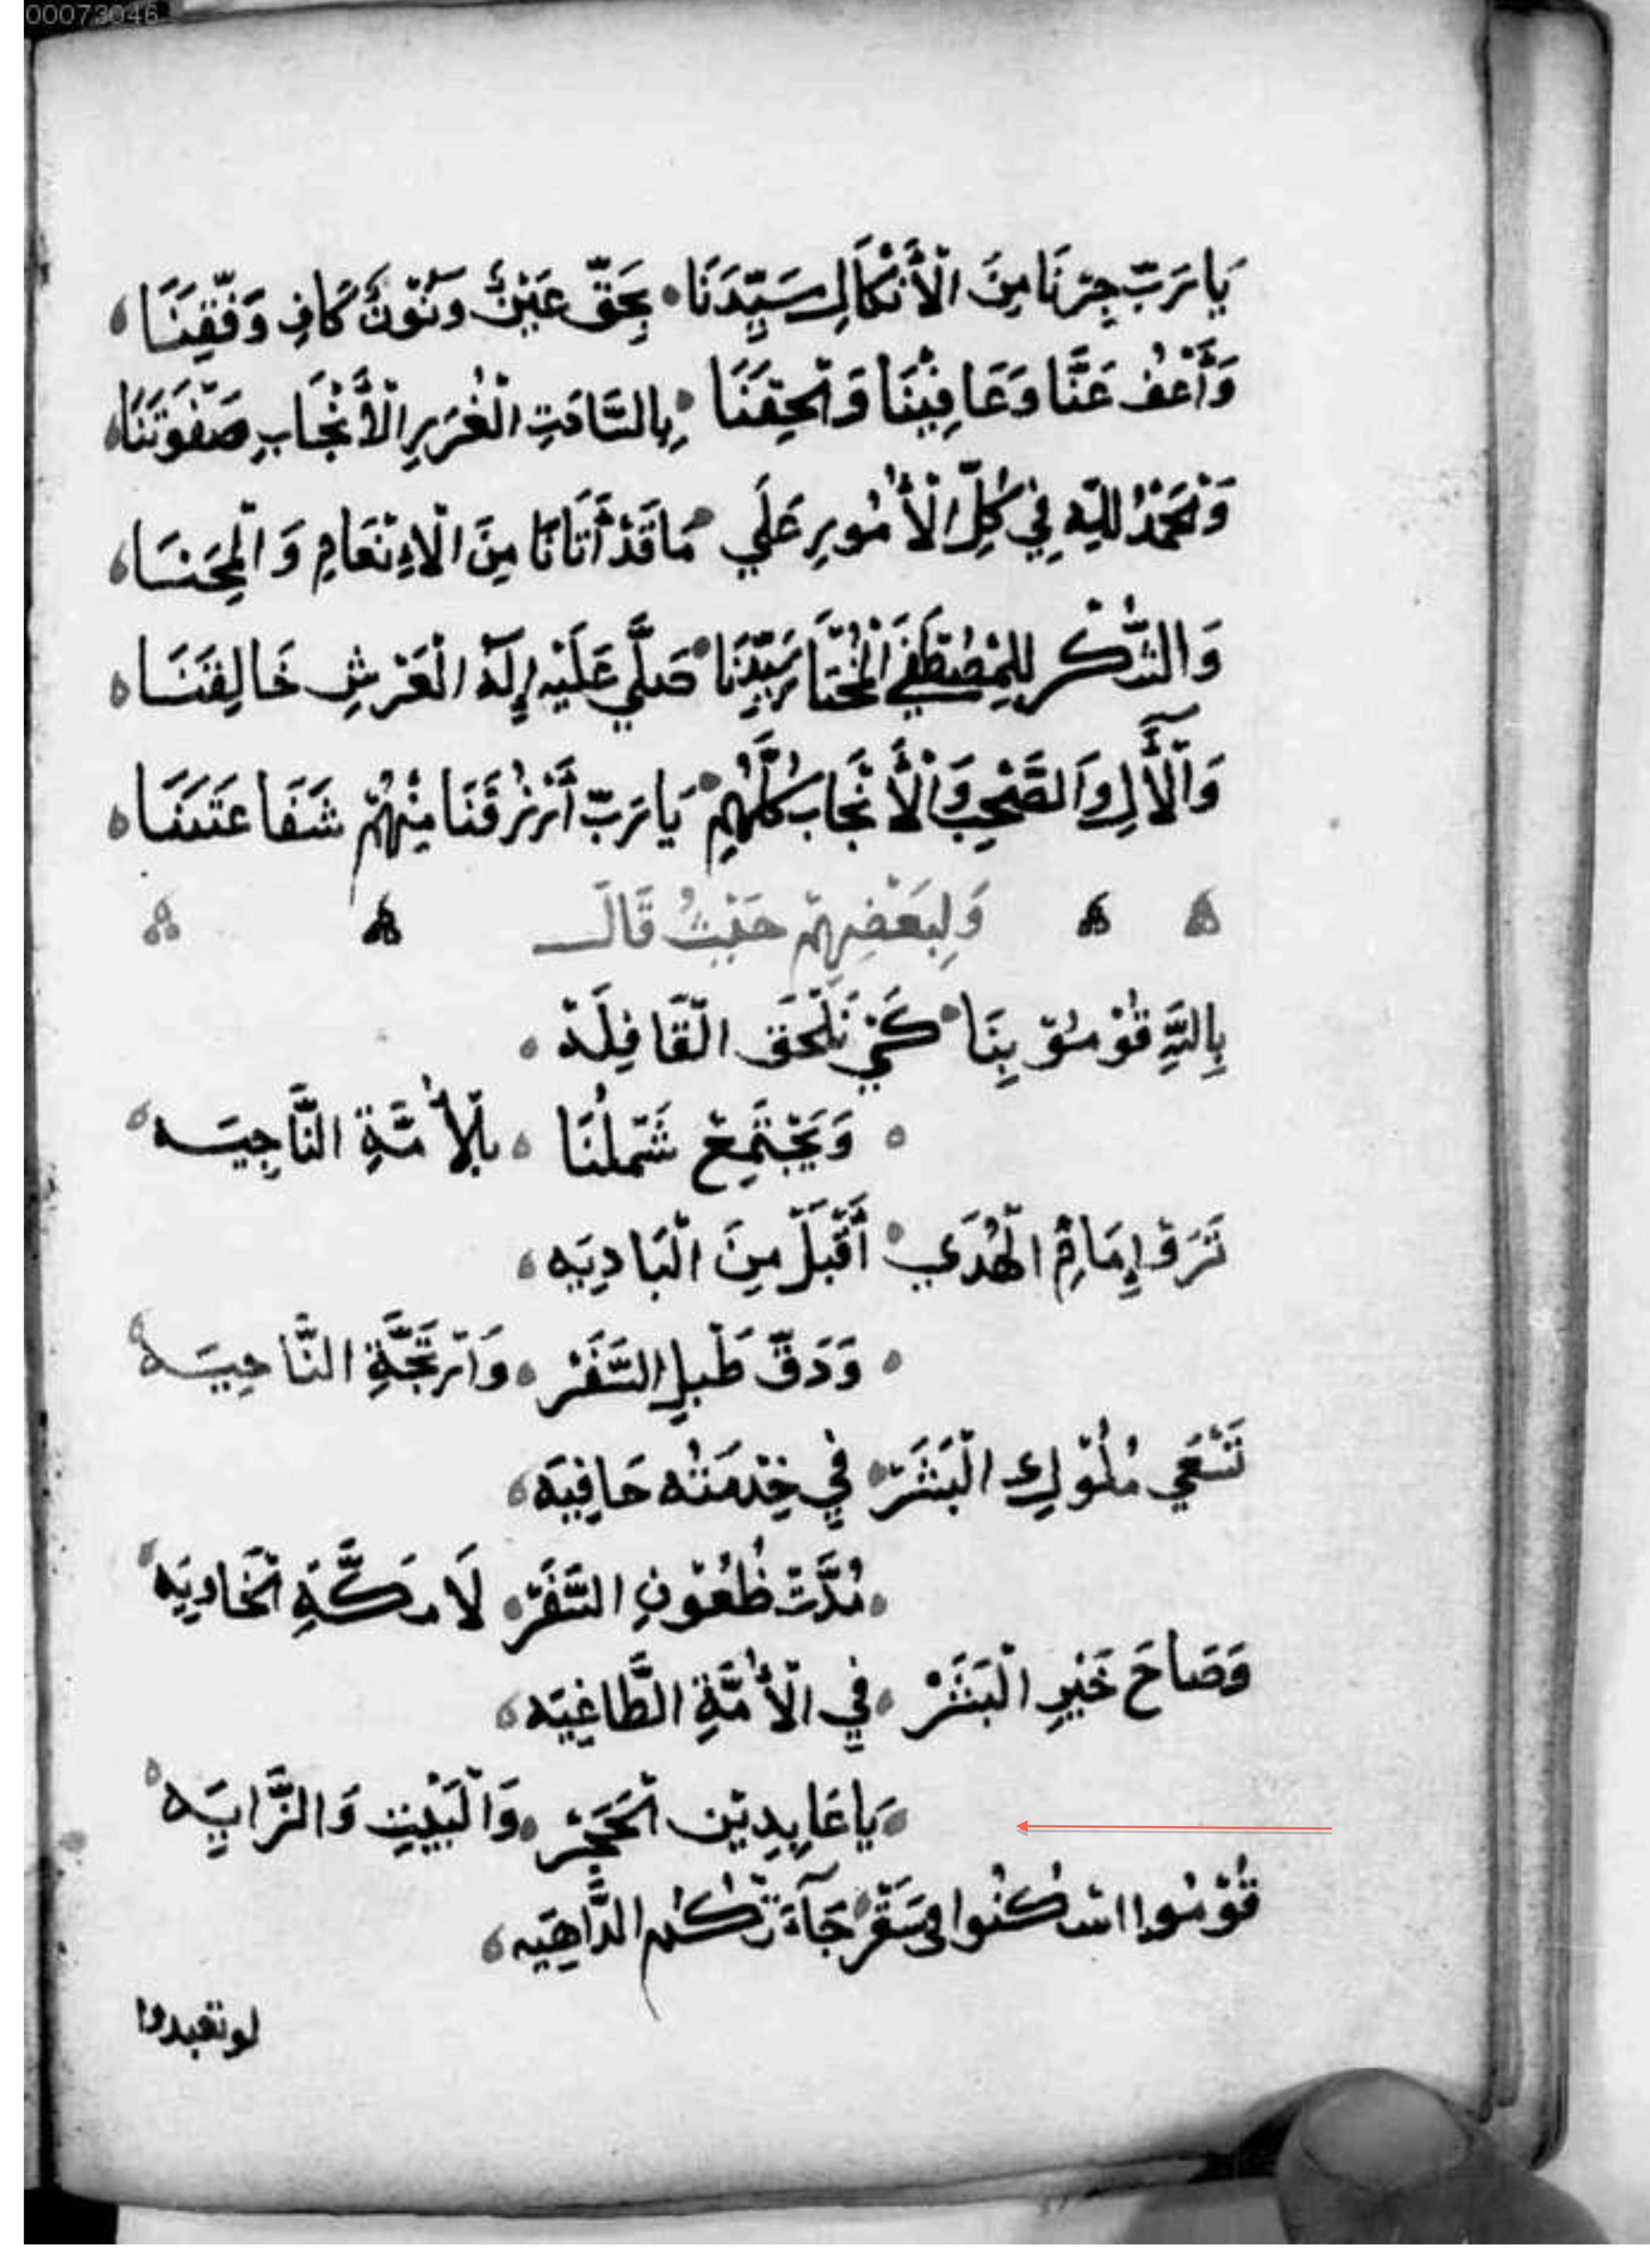 00073046
يَا رَبّ جِرْنَا مِنَ الْأَنْكَالِ سَيِّدَنَا بِحَقِّ عَيْنْ وَنُوْنْ كَافِ وَفِّقِنَا
وَأَعْفُ عَنَّا وَعَافِيْنَا وَالْحِقَنَا بِالسَّادَتِ الْغُرَرِ الْأَنْجَابِ صَفْوَتَنَا
وَنَحْمَدُ للَّهِ فِي كُلِّ الْأُمُورِ عَلَي مَا قَدْ أَتَانَا مِنَ الْاِنْعَامِ وَالْمِحَنَا
وَالشُّكْر لِلْمُصْطَفَي الْمُخْتَار سَيِّدِنَا صَلَّي عَلَيْهِ إِلَهْ الْعَرْشِ خَالِقَنَا
وَالْأَٓلِ وَالصَّحْبِ وَالْأَنْجَابِ كُلَّهُمِ يَا رَبّ أَرْزُقَنَا مِنْهُمْ شَفَاعَتَنَا
وَلِبَعْضِهِمْ حَيْثُ قَالَ
بِاللَّهِ قُوْمُوْ بِنَا كَيْ نَلْحَق الْقَافِلَهْ
وَيَجْتَمِعْ شَمْلُنَا بِلْأُمَّةِ النَّاجِيَه
تَرَوْ إِمَامِ الْهُدَي أَقْبَلْ مِنَ الْبَادِيَه
وَدَقّ طَبْلِ السَّفَرْ وَارْتَجَّةِ النَّاحِيَه
تَسْعَي مُلُوْكِ الْبَشَرْ فِي خِدْمَتُه حَافِيَه
مُدَّتْ ظُعُوْنِ السَّفَرْ لَا مَكَّةِ الْخَاوِيَه
وَصَاحَ خَيْرِ الْبَشَرْ فِي الْأُمَّةِ الطَّاغِيَه
يَا عَابِدِيْن الْحَجَرْ وَالْبَيْتِ وَالزَّاِيَه
قُوْمُوا اسْكُنُوا فى سَقَرْ جَآءَتْكُم الدَّاهِيَه
لو تعبدوا